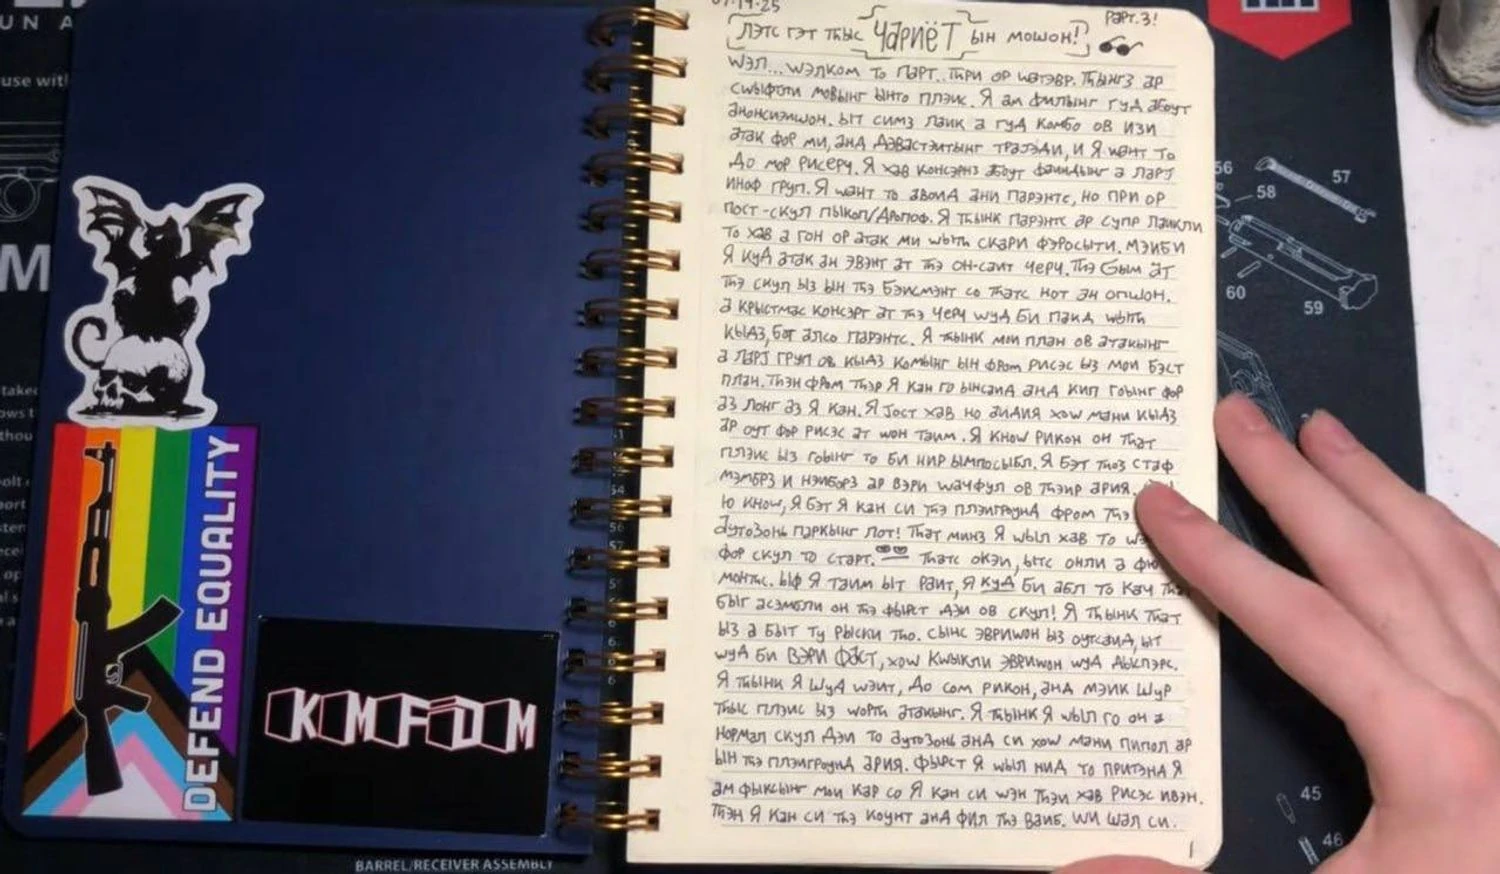 DEFEND EQUALITY
KMFDM
BARREL/RECEIVER ASSEMBLY
56
57
58
59
60
45
46
Рарт.3!
ЛЭТС ГЭТ ТҺЫС ЧАРИЁТ ЫН МОШОН!
WЭЛ... WЭЛКОМ ТО ПАРТ.. ТҺРИ ОР WАТЭВР. ТҺЫНГЗ АР
СWЫФТЛИ МОВЫНГ ЫНТО ПЛЭЙС. Я АМ ФИЛЫНГ ГУД АБОУТ
АНОНСИЭЙШОН. ЫТ СИМЗ ЛАИК А ГУД КОМБО ОВ ИЗИ
АТАК ФОР МИ, АНД ДЭВАСТЭИТЫНГ ТРАЭДИ, И Я WАНТ ТО
ДО МОР РИСЕРЧ. Я ХАВ КОНСЭРНЗ АБОУТ ФАИНДЫНГ А ЛАРJ
ИНОФ ГРУП. Я WАНТ ТО АВОИД АНИ ПАРЭНТС, НО ПРИ ОР
ПОСТ-СКУЛ ПЫКОП/ДРОПОФ. Я ТҺЫНК ПАРЭНТС АР СУПР ЛАИКЛИ
ТО ХАВ А ГОН ОР АТАК МИ WЫТҺ СКАРИ ФЭРОСЫТИ. МЭЙБИ
Я КУД АТАК АН ЭВЭНТ АТ ТҺЭ ОН-САИТ ЧЕРЧ. ТҺЭ GЫМ АТ
ТҺЭ СКУЛ ЫЗ ЫН ТҺЭ БЭИСМЭНТ СО ТҺАТС НОТ АН ОПШОН.
А КРЫСТМАС КОНСЭРТ АТ ТҺЭ ЧЕРЧ WУД БИ ПАКД WЫТҺ
КЫДЗ, БОТ АЛСО ПАРЭНТС. Я ТҺЫНК МОИ ПЛАН ОВ АТАКЫНГ
А ЛАРJ ГРУП ОВ КЫДЗ КОМЫНГ ЫН ФРОМ РИСЭС ЫЗ МОИ БЭСТ
ПЛАН. ТҺЭН ФРОМ ТҺЭР Я КАН ГО ЫНСАИД АНД КИП ГОЫНГ ФОР
АЗ ЛОНГ АЗ Я КАН. Я JОСТ ХАВ НО АИДИЯ ХОW МАНИ КЫДЗ
АР ОУТ ФОР РИСЭС АТ WОН ТАИМ. Я КНОW РИКОН ОН ТҺАТ
ПЛЭИС ЫЗ ГОЫНГ ТО БИ НИР ЫМПОСЫБЛ. Я БЭТ ТҺОЗ СТАФ
МЭМБРЗ И НЭИБОРЗ АР ВЭРИ WАЧФУЛ ОВ ТҺЭИР АРИЯ.
Ю КНОW, Я БЭТ Я КАН СИ ТҺЭ ПЛЭИГРОУНД ФРОМ ТҺЭ
АУТОЗОНЬ ПАРКЫНГ ЛОТ! ТҺАТ МИНЗ Я WЫЛ ХАВ ТО
ФОР СКУЛ ТО СТАРТ. ТҺАТС ОКЭИ, ЫТС ОНЛИ А
МОНТҺС. ЫФ Я ТАИМ ЫТ РАИТ, Я КУД БИ АБЛ ТО КАЧ
БЫГ АСЭМБЛИ ОН ТҺЭ ФЫРСТ ДЭИ ОВ СКУЛ! Я ТҺЫНК ТҺАТ
ЫЗ А БЫТ ТУ РЫСКИ ТҺО. СЫНС ЭВРИWОН ЫЗ ОУТСАИД, ЫТ
WУД БИ ВЭРИ ФАСТ, ХОW КWЫКЛИ ЭВРИWОН WУД ДЫСПЭРС.
Я ТҺЫНК Я ШУД WЭИТ, ДО СОМ РИКОН, АНД МЭИК ШУР
ТҺЫС ПЛЭИС ЫЗ WОРТҺ АТАКЫНГ. Я ТҺЫНК Я WЫЛ ГО ОН А
НОРМАЛ СКУЛ ДЭИ ТО АУТОЗОНЬ АНД СИ ХОW МАНИ ПИПОЛ АР
ЫН ТҺЭ ПЛЭИГРОУНД АРИЯ. ФЫРСТ Я WЫЛ НИД ТО ПРИТЭНД Я
АМ ФЫКСЫНГ МОИ КАР СО Я КАН СИ WЭН ТҺЭИ ХАВ РИСЭС ИВЭН.
ТҺЭН Я КАН СИ ТҺЭ КОУНТ АНД ФИЛ ТҺЭ ВАИБ. WИ ШАЛ СИ.
1